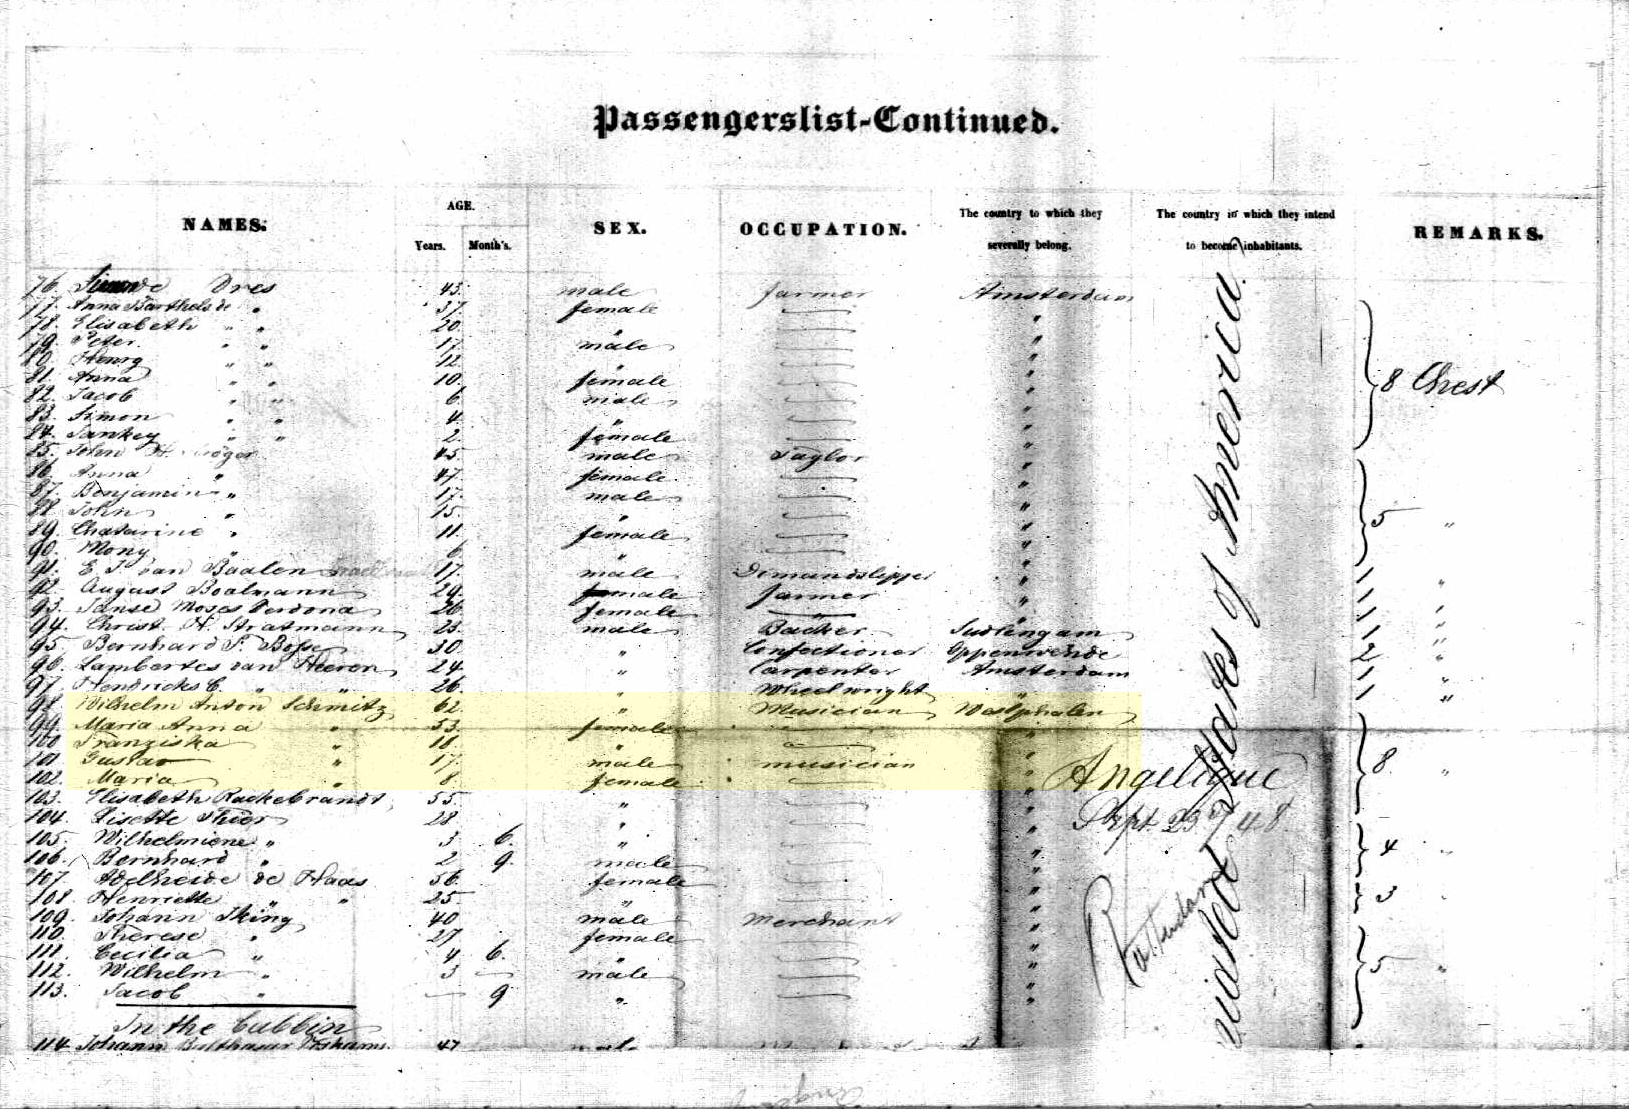 Passengerslist-Continued.
NAMES. AGE. Years. Month's. SEX. OCCUPATION. The country to which they severally belong. The country in which they intend to become inhabitants. REMARKS.
76. Dres 43. male farmer Amsterdam
77. Anna Barthels de " 37. female "
78. Elisabeth " " 20. " "
79. Peter " " 17. male "
80. Henry " " 12. " "
81. Anna " " 10. female "
82. Jacob " " 6. male " 8 Chest
83. Simon " " 4. " "
84. " " 2. female "
85. John H. 45. male Taylor "
86. Anna " 47. female "
87. Benjamin " 17. male "
88. John " 15. " " 5 "
89. Chatarine " 11. female "
90. Mony " 6. " "
91. E. J. van Baalen 17. male " 1 "
92. August Boalmann 29. male farmer " 1 "
93. Moses 26. female " 1 "
94. Christ. H. Stratmann 23. male Backer 1 "
95. Bernhard 30. " Confectioner 2 "
96. Lambertes van Heeren 24. " Carpenter Amsterdam 1 "
97. Hendricks C. " " 26. " Wheelwright " 1 "
98. Wilhelm Anton Schmitz 62. " Musician Westphalen
99. Maria Anna " 53. female "
100 Franziska " 18. " "
101 Gustav " 17. male musician " 8. "
102. Maria " 8 female "
103. Elisabeth Rackebrandt, 55. " "
104. Lisette 28. " "
105. Wilhelmiene " 3 6. " "
106. Bernhard " 2 9. male " 4 "
107. Adelheide de Haas 56. female "
108. Henriette " " 25. " " 3 "
109. Johann 40 male Merchant "
110. Therese " 27 female "
111. Cecilia " 4 6. " "
112. Wilhelm " 3 male " 5 "
113. Jacob " 9 " "
In the Cubbin
114. Johann Balthasar 47
United States of America
Angelique
Sept. 23 48
Rotterdam